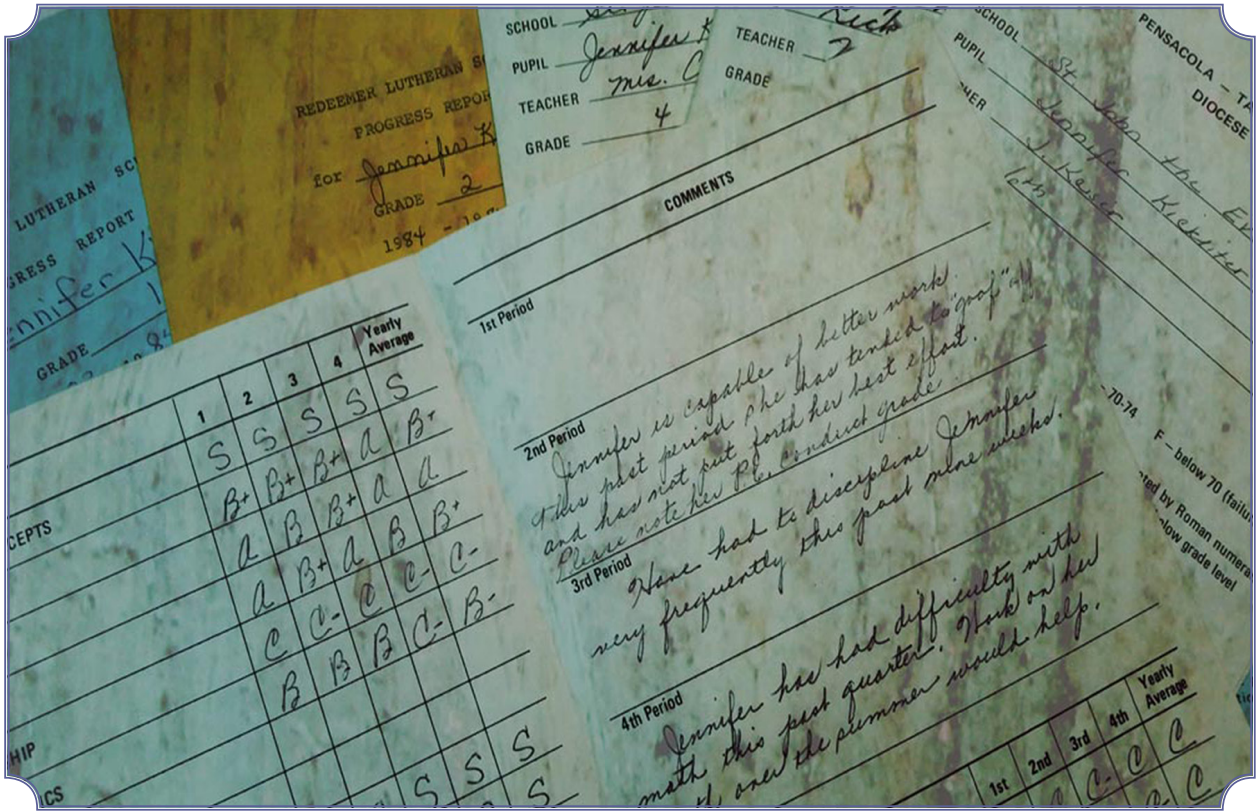 LUTHERAN SC
REPORT
GRESS
ennifer K
GRADE 1
REDEEMER LUTHERAN SC
PROGRESS REPOR
for Jennifer K
GRADE 2
1984 - 198
SCHOOL
PUPIL Jennifer K
TEACHER Mrs. C
GRADE 4
TEACHER Rich
GRADE 2
SCHOOL St John the Ev
PUPIL Jennifer Kickliter
HER J. Keser
6th
PENSACOLA - TA
DIOCESE
COMMENTS
1st Period
Jennifer is capable of better work.
This past period she has tended to "goof"
and has not put forth her best effort.
Please note her P.E. conduct grade
2nd Period
Have had to discipline Jennifer
very frequently this past nine weeks.
3rd Period
Jennifer has had difficulty with
math this past quarter. Work on her
over the summer would help.
4th Period
1 2 3 4 Yearly
Average
S S S S S
B+ B+ B+ A B+
CEPTS
A B B+ A A
A B+ A B B+
C C- C C- C-
B B B C- B-
HIP
ICS
S S S
S
70-74
F – below 70 (failu
ted by Roman numera
elow grade level
1st 2nd 3rd 4th Yearly
Average
C- C C
C